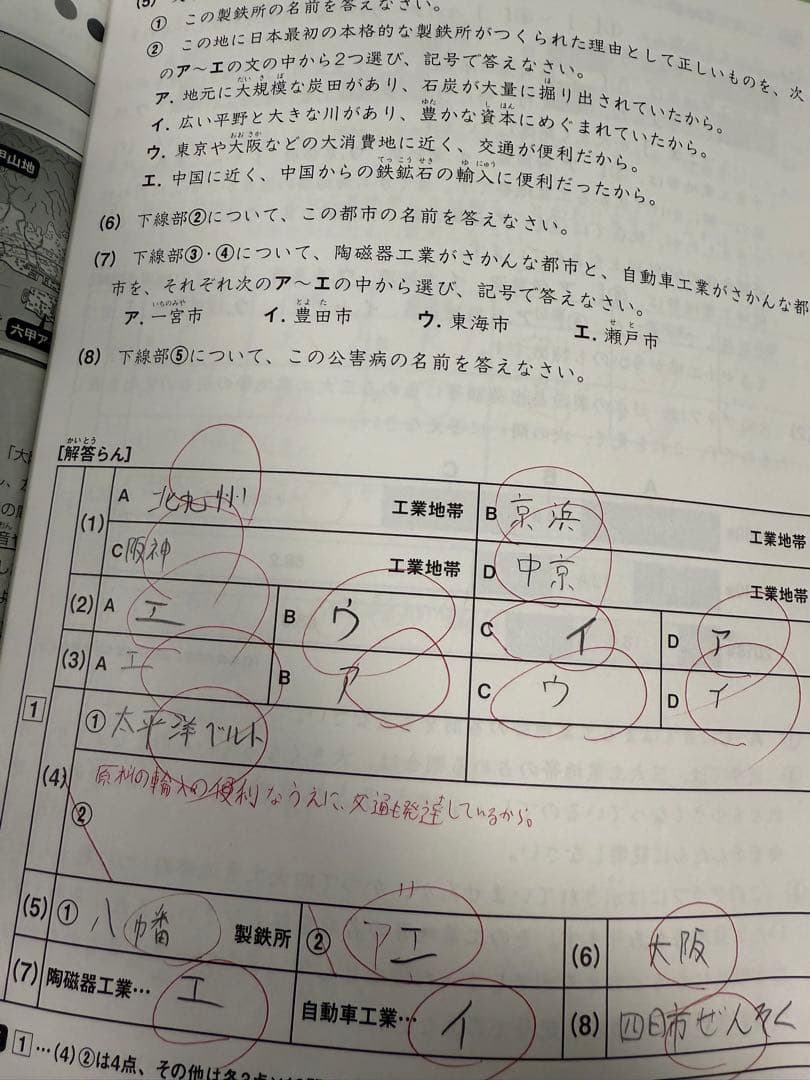 ① この製鉄所の名前を答えなさい。
② この地に日本最初の本格的な製鉄所がつくられた理由として正しいものを、次
のア～エの文の中から2つ選び、記号で答えなさい。
ア. 地元に大規模な炭田があり、石炭が大量に掘り出されていたから。
イ. 広い平野と大きな川があり、豊かな資本にめぐまれていたから。
ウ. 東京や大阪などの大消費地に近く、交通が便利だから。
エ. 中国に近く、中国からの鉄鉱石の輸入に便利だったから。
(6) 下線部②について、この都市の名前を答えなさい。
(7) 下線部③・④について、陶磁器工業がさかんな都市と、自動車工業がさかんな都
市を、それぞれ次のア～エの中から選び、記号で答えなさい。
ア. 一宮市 イ. 豊田市 ウ. 東海市 エ. 瀬戸市
(8) 下線部⑤について、この公害病の名前を答えなさい。
[解答らん]
1
(1) A 北九州 工業地帯 B 京浜 工業地帯
C 阪神 工業地帯 D 中京 工業地帯
(2) A エ B ウ C イ D ア
(3) A エ B ア C ウ D イ
(4) ① 太平洋ベルト
② 原料の輸入の便利なうえに、交通も発達しているから。
(5) ① 八幡 製鉄所 ② アエ (6) 大阪
(7) 陶磁器工業… エ 自動車工業… イ (8) 四日市ぜんそく
1…(4)②は4点、その他は各3点
甲山地
六甲ア